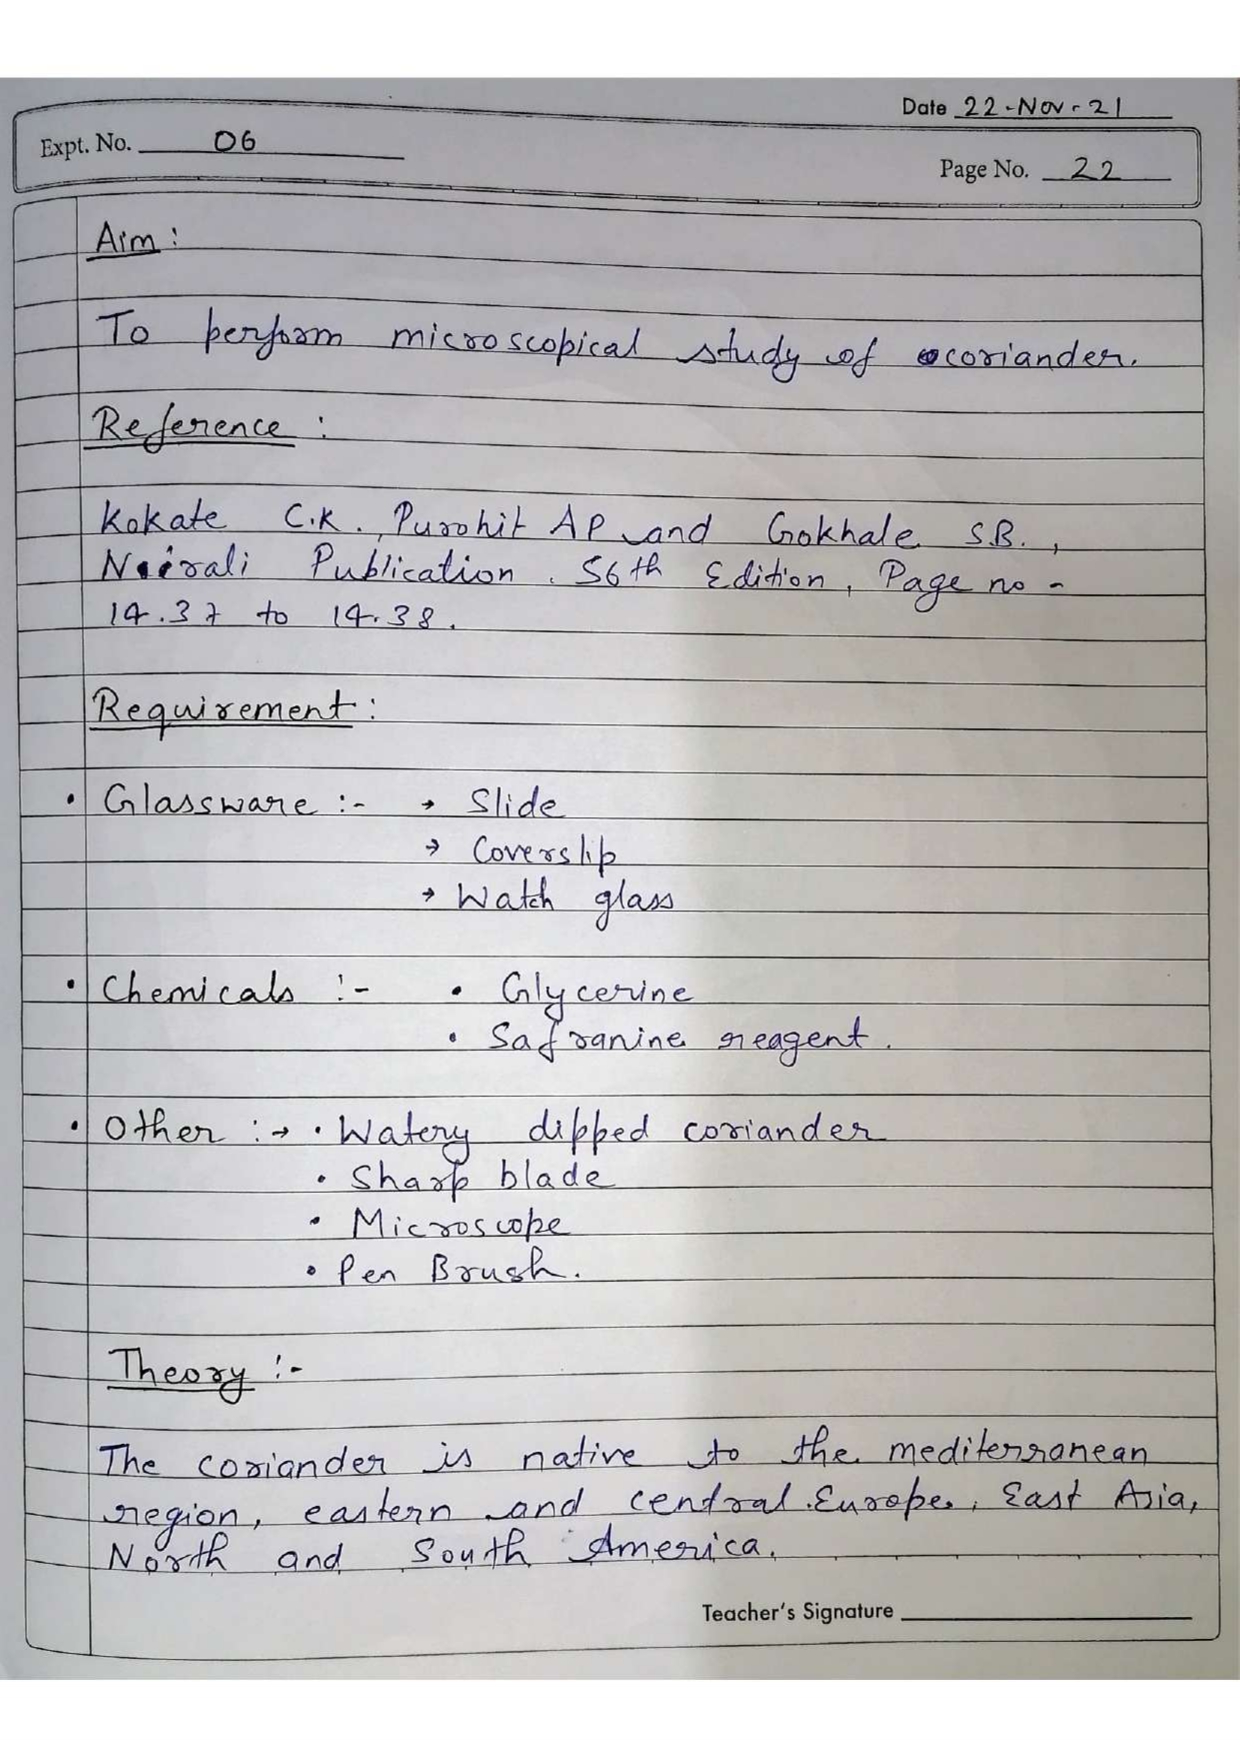 Date 22-Nov-21
Expt. No. 06
Page No. 22
Aim :
To perform microscopical study of coriander.
Reference :
Kokate C.K., Purohit AP and Gokhale S.B.,
Nirali Publication. 56th Edition, Page no -
14.37 to 14.38.
Requirement :
• Glassware :- → Slide
→ Coverslip
→ Watch glass
• Chemicals :- • Glycerine
• Safranine reagent.
• Other :→ • Watery dipped coriander
• Sharp blade
• Microscope
• Pen Brush.
Theory :-
The coriander is native to the mediterranean
region, eastern and central Europe, East Asia,
North and South America.
Teacher's Signature